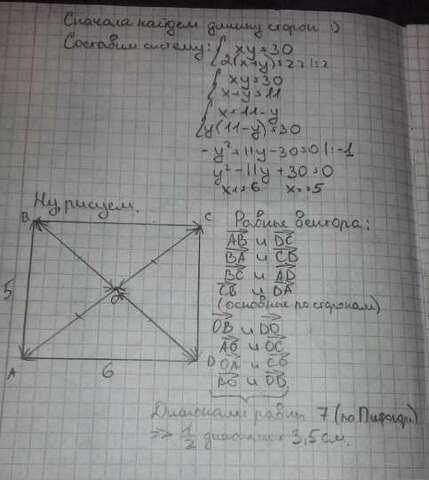 Сначала найдем длину сторон :)
Составим систему: { xy=30
2(x+y)=22 |:2
{ xy=30
x+y=11
{ x=11-y
y(11-y)=30
-y²+11y-30=0 |:-1
y²-11y+30=0
x₁=6 x₂=5
Ну, рисуем.
B C
5
O
A 6 D
Равные вектора:
AB и DC
BA и CD
BC и AD
CB и DA
(основные по сторонам)
OB и DO
AO и OC
OA и CO
BO и OD
Диагонали равны 7 (по Пифагору)
=> 1/2 диагонали = 3,5 см.